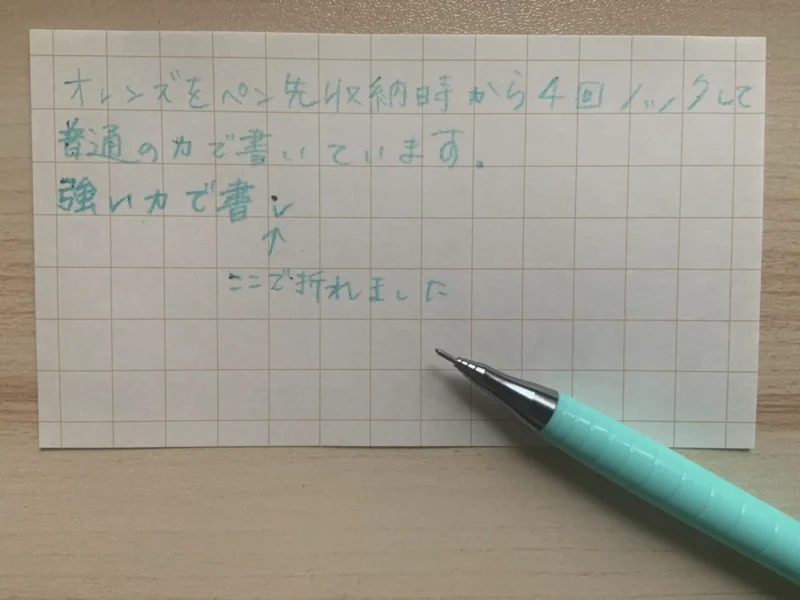 オレンズをペン先収納時から4回ノックして
普通の力で書いています。
強い力で書い
↑
ここで折れました